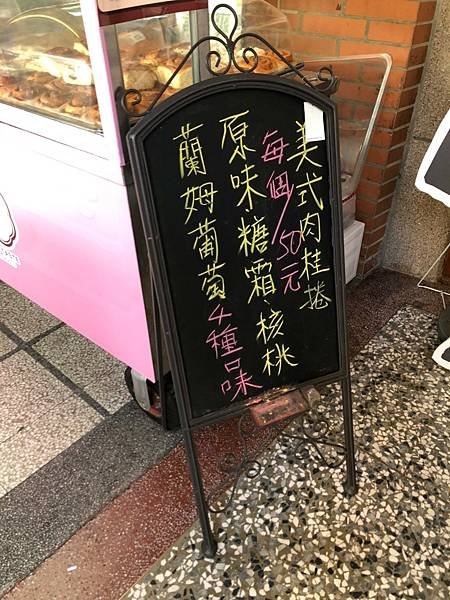 美式肉桂捲
每個/50元
原味·糖霜·核桃
蘭姆葡萄4種口味